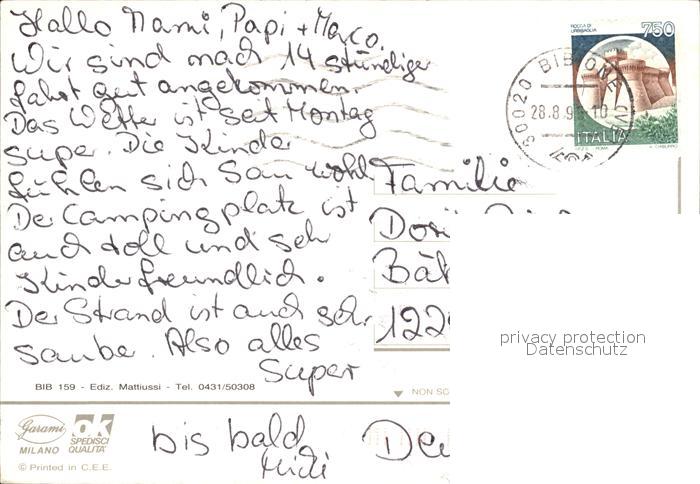 Hallo Mami, Papi + Marco,
Wir sind nach 14 stündiger
Fahrt gut angekommen.
Das Wetter ist seit Montag
super. Die Kinder
fühlen sich Sau wohl
Der Campingplatz ist
auch toll und sehr
Kinderfreundlich.
Der Strand ist auch sehr
sauber. Also alles
Super
bis bald
Familie
Bät
122
ROCCA DI
URBISAGLIA
750
ITALIA
I.P.Z.S. ROMA
30020 BIBIONE
28.8.9 10
privacy protection
Datenschutz
BIB 159 - Ediz. Mattiussi - Tel. 0431/50308
NON SC
Garami
MILANO
ok
SPEDISCI
QUALITA'
© Printed in C.E.E.